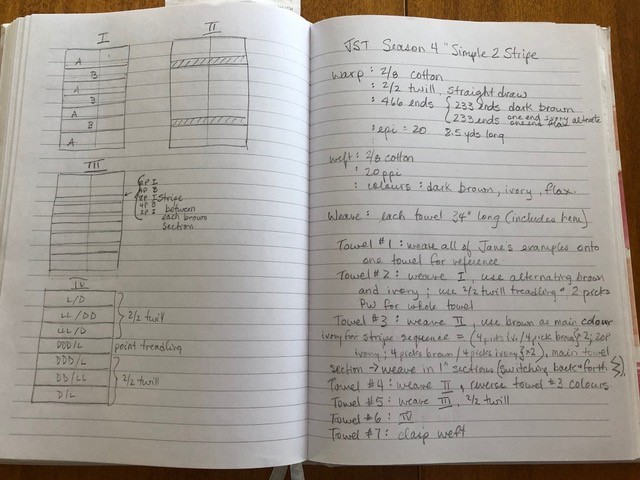 I
A
B
A
B
A
B
A
II
III
6P I
4P B
2P I stripe
4P B between
2P I each brown
section
IV
L/D
LL/DD
LLL/D
DDD/L
DDD/L
DD/LL
D/L
2/2 twill
point treadling
2/2 twill
JST Season 4 "Simple 2 Stripe
Warp : 2/8 cotton
: 2/2 twill, straight draw
: 466 ends { 233 ends dark brown
233 ends one end ivory alternate
one end flax
: epi = 20 8.5 yds long
Weft : 2/8 cotton
: 20 ppi
: colours : dark brown, ivory, flax.
Weave : each towel 34" long (includes hem)
Towel #1 : weave all of Jane's examples onto
one towel for reference
Towel #2 : weave I, use alternating brown
and ivory; use 2/2 twill treadling * 2 picks
PW for whole towel
Towel #3 : weave II, use brown as main colour
ivory for stripe sequence = (4 picks iv./4 pick brown) x 2;
ivory; 4 picks brown/4 picks ivory} x2), main towel
section → weave in 1" sections (switching back & forth
Towel #4 : weave II, reverse towel #3 colours
Towel #5 : weave III, 2/2 twill
Towel #6 : IV
Towel #7 : weft